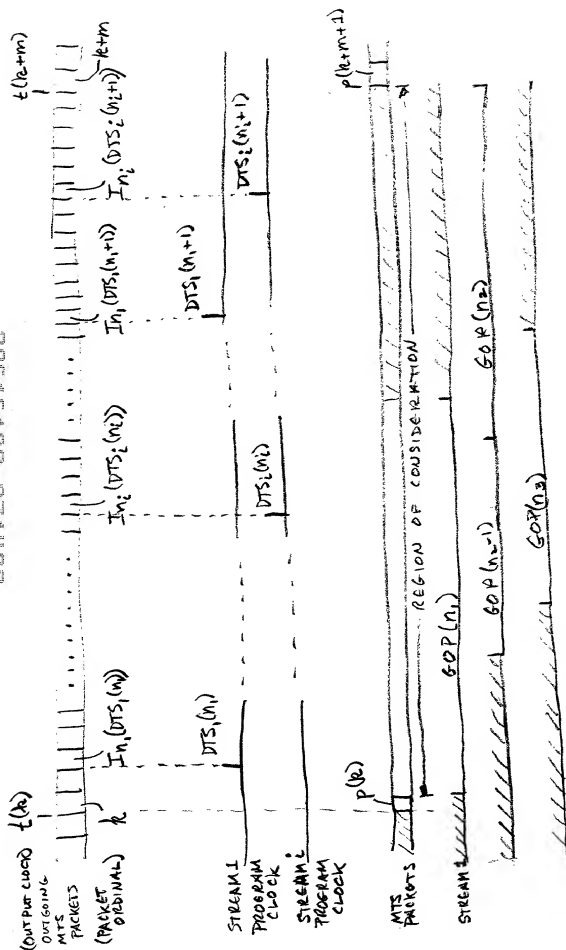 (OUTPUT CLOCK) t(k) t(k+m)
OUTGOING
MTS
PACKETS
(PACKET
ORDINAL) k In₁(DTS₁(n₁)) Inᵢ(DTSᵢ(nᵢ)) In₁(DTS₁(n₁+1)) Inᵢ(DTSᵢ(nᵢ+1)) k+m
STREAM 1
PROGRAM
CLOCK DTS₁(n₁) DTS₁(n₁+1)
STREAM i
PROGRAM
CLOCK DTSᵢ(nᵢ) DTSᵢ(nᵢ+1)
p(k) p(k+m+1)
MTS
PACKETS
REGION OF CONSIDERATION
STREAM 1 GOP(n₁)
GOP(n₂-1) GOP(n₂)
GOP(n₃)